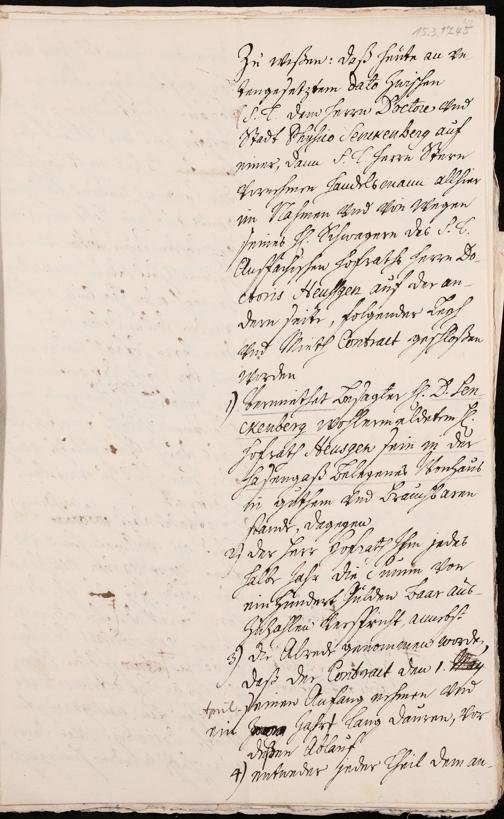 15.3.1745
Zu wißen: daß heute an un-
tengesetztem dato zwischen
S. T. dem Herrn Doctore und
Stadt Physico Senckenberg auf
einer, dann S. T. Herrn Stern
vornehmen Handelsmann allhier
im Nahmen und von wegen
seines H. Schwagern des S. T.
Anspachischen Hofraths Herrn Do-
ctoris Heusgen auf der an-
dern seite, folgender Lehn
und Mieth Contract geschloßen
worden
1) vermiethet besagter H. D. Sen-
ckenberg wohlermeldetem H.
Hofrath Heusgen sein in der
Hasengaß belegenes Wonhaus
in guthem und brauchbaren
stande, dagegen
2) der Herr Hofrath Ihm jedes
halbe Jahr die Summ von
einhundert Gulden baar aus-
zuzahlen verspricht, annebst
3) die Abrede genommen worden,
daß der Contract den 1.
April seinen Anfang nehmen und
ein Jahr lang dauren, vor
deßen Ablauf
4) entweder jeder Theil dem an-